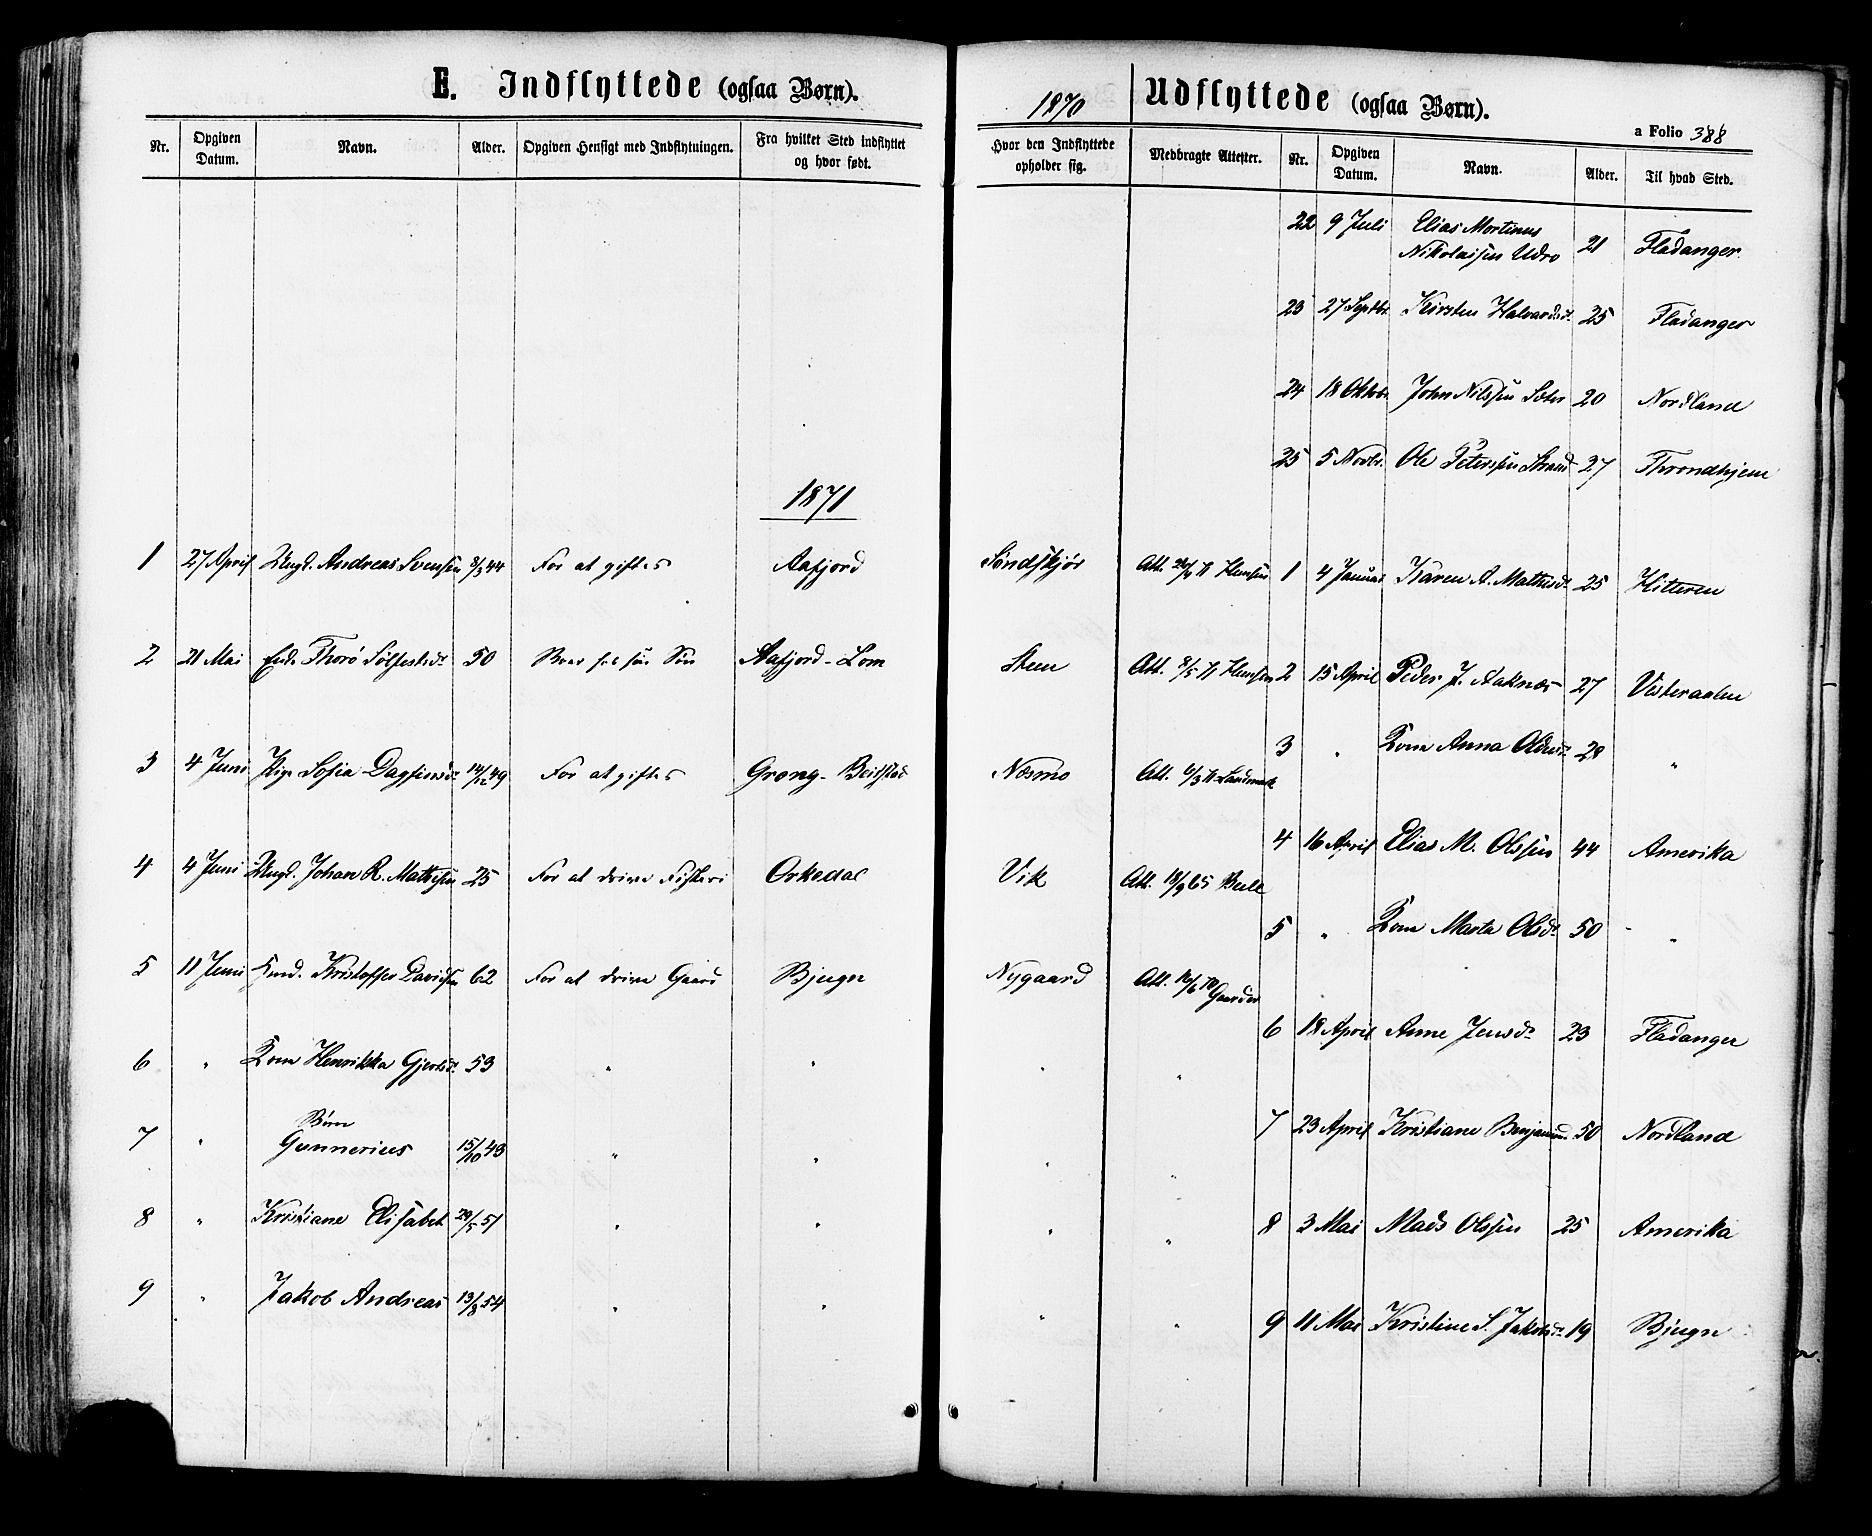 E. Indflyttede (ogsaa Børn).
Nr. Opgiven Datum. Navn. Alder. Opgiven Hensigt med Indflytningen. Fra hvilket Sted indflyttet og hvor født.
1871
1 27 April Ungk. Andreas Svensen 8/3 44 For at giftes Aafjord
2 21 Mai Enke Thorø 50 Aafjord - Lom
3 4 Juni Pige Sofia Dagfinsd. 14/12 49 For at giftes Grong - Beitstad
4 4 Juni Ungk. Johan R. Mathisen 25 For at drive Fiskeri Orkedal
5 11 Juni Gmd. Kristoffer Davidsen 62 For at drive Gaard Bjugn
6 " Kone Henrikka 53 " "
Børn
7 " Gunnerius 15/10 43 " "
8 " Kristiane Elisabet 29/5 51 " "
9 " Jakob Andreas 13/8 54 " "
1870
Udflyttede (ogsaa Børn).
a Folio 388
Hvor den Indflyttede opholder sig. Medbragte Attester. Nr. Opgiven Datum. Navn. Alder. Til hvad Sted.
22 9 Juli Elias Martinus
Nikolaisen Udro 21 Fladanger
23 27 Septbr. Kirsten Halvardsd. 25 Fladanger
24 18 Oktobr. John Nilssen Sæter 20 Nordland
25 5 Novbr. Ole Peterssen Strand 27 Throndhjem
Søndskjør Att. 1 4 Januar Karen A. Mathisd. 25 Hitteren
Steen Att. 8/5 71 2 15 April Peder J. Aaknæs 27 Vesteraalen
3 " Kone Anna Olausd. 28 "
Næsmo Att. 6/3 71
4 16 April Elias M. Olssen 44 Amerika
Vik Att. 18/9 65
5 " Kone Marta Olsd. 50 "
Nygaard Att. 10/6 70 Gaarder
6 18 April Anne Jensd. 23 Fladanger
" "
7 23 April Kristiane Benjamind. 50 Nordland
" "
8 3 Mai Mads Olssen 25 Amerika
" "
9 11 Mai Kristine S. Jakobsd. 19 Bjugn
" "